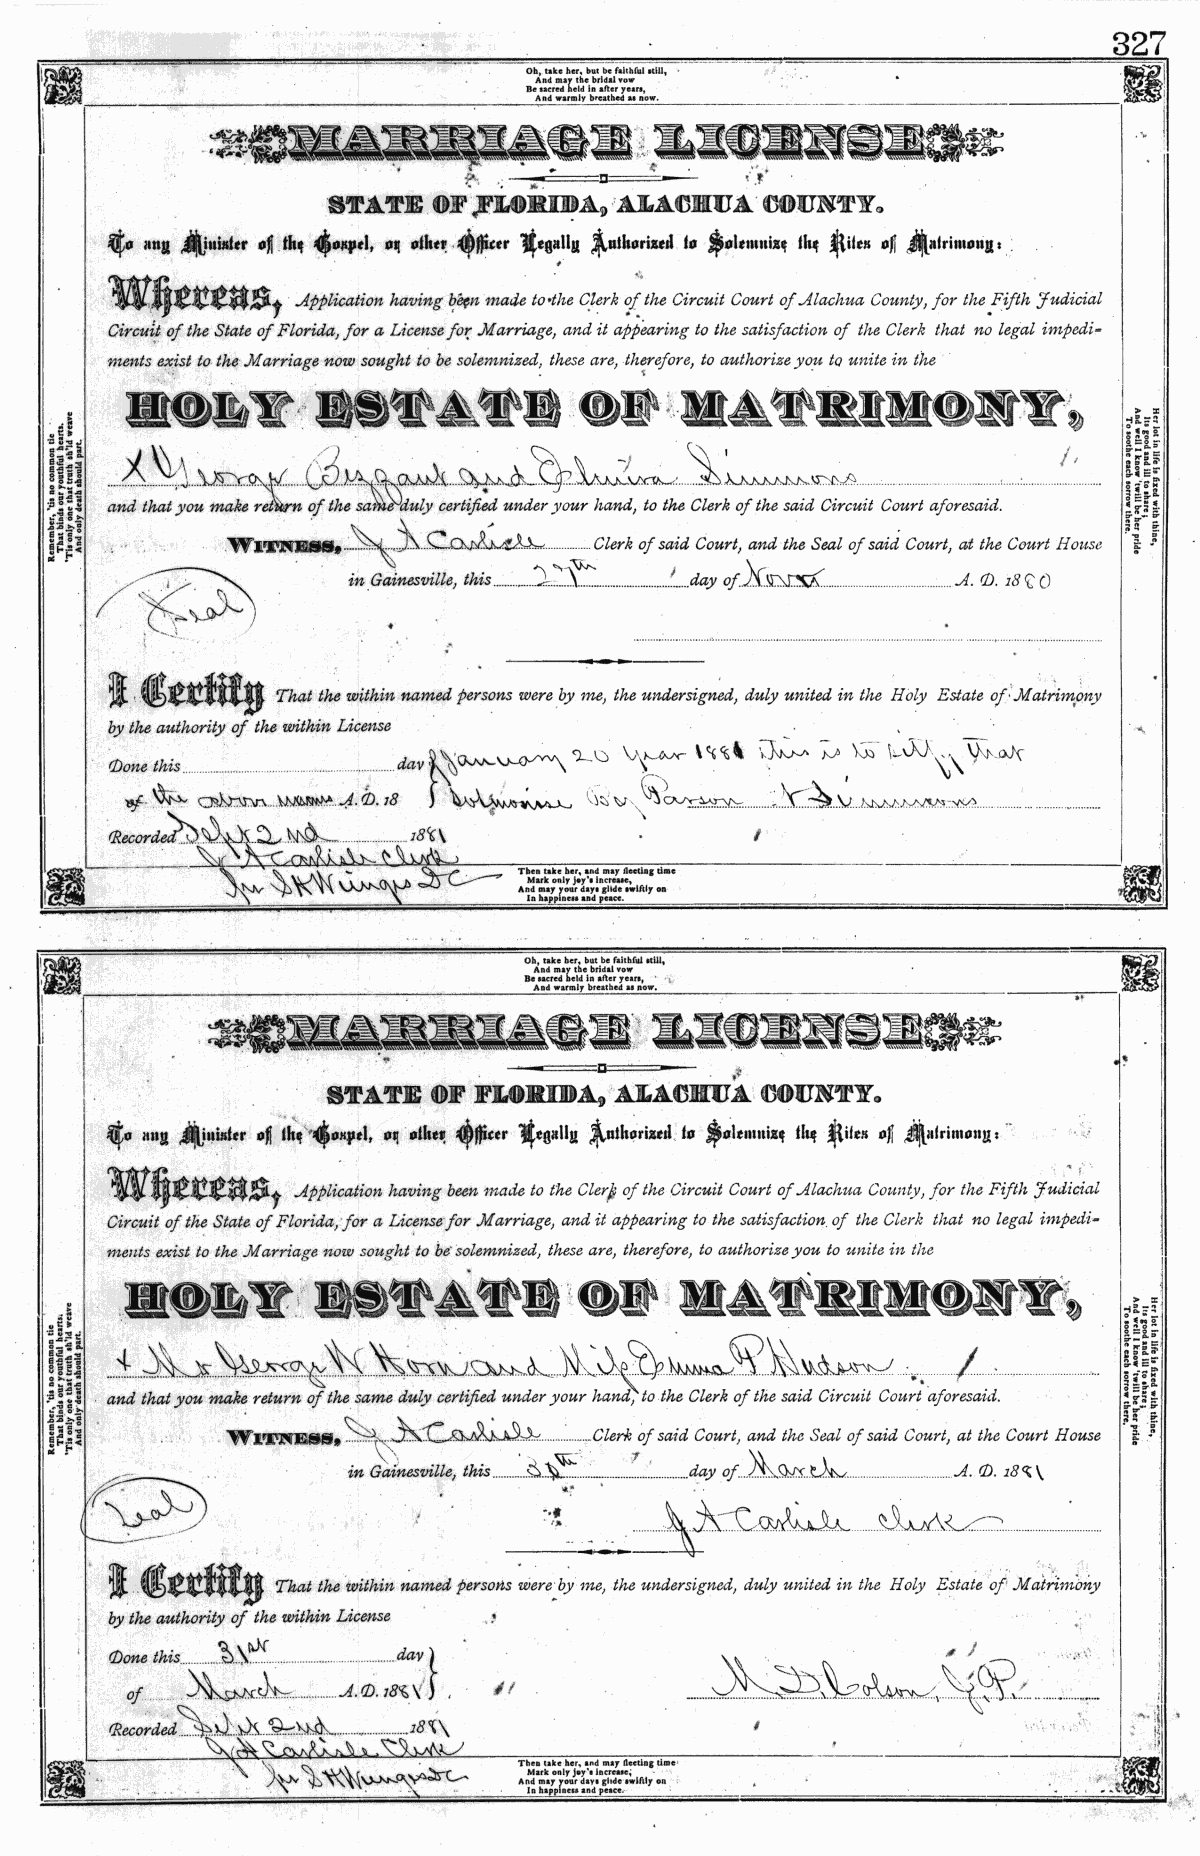 327
Oh, take her, but be faithful still,
And may the bridal vow
Be sacred held in after years,
And warmly breathed as now.
MARRIAGE LICENSE
STATE OF FLORIDA, ALACHUA COUNTY.
To any Minister of the Gospel, or other Officer Legally Authorized to Solemnize the Rites of Matrimony:
Whereas, Application having been made to the Clerk of the Circuit Court of Alachua County, for the Fifth Judicial
Circuit of the State of Florida, for a License for Marriage, and it appearing to the satisfaction of the Clerk that no legal impedi-
ments exist to the Marriage now sought to be solemnized, these are, therefore, to authorize you to unite in the
HOLY ESTATE OF MATRIMONY,
X George Bezzant and Elmira Simmons
and that you make return of the same duly certified under your hand, to the Clerk of the said Circuit Court aforesaid.
WITNESS, J A Carlisle Clerk of said Court, and the Seal of said Court, at the Court House
in Gainesville, this 27th day of Novr A. D. 1880
Seal
I Certify That the within named persons were by me, the undersigned, duly united in the Holy Estate of Matrimony
by the authority of the within License
Done this day January 20 year 1881 this is to sitfy that
of the above A. D. 18 solmonise By Parson Simmons
Recorded Sept 2nd 1881
J A Carlisle Clerk
for S H Wienges DC
Remember, 'tis no common tie
That binds our youthful hearts.
'Tis only one that truth sh'ld weave
And only death should part.
Her lot in life is fixed with thine,
Its good and ill to share;
And well I know 'twill be her pride
To soothe each sorrow there.
Then take her, and may fleeting time
Mark only joy's increase,
And may your days glide swiftly on
In happiness and peace.
Oh, take her, but be faithful still,
And may the bridal vow
Be sacred held in after years,
And warmly breathed as now.
MARRIAGE LICENSE
STATE OF FLORIDA, ALACHUA COUNTY.
To any Minister of the Gospel, or other Officer Legally Authorized to Solemnize the Rites of Matrimony:
Whereas, Application having been made to the Clerk of the Circuit Court of Alachua County, for the Fifth Judicial
Circuit of the State of Florida, for a License for Marriage, and it appearing to the satisfaction of the Clerk that no legal impedi-
ments exist to the Marriage now sought to be solemnized, these are, therefore, to authorize you to unite in the
HOLY ESTATE OF MATRIMONY,
x Mr George W Horn and Miss Emma P Hudson
and that you make return of the same duly certified under your hand, to the Clerk of the said Circuit Court aforesaid.
WITNESS, J A Carlisle Clerk of said Court, and the Seal of said Court, at the Court House
in Gainesville, this 30th day of March A. D. 1881
Seal
J A Carlisle Clerk
I Certify That the within named persons were by me, the undersigned, duly united in the Holy Estate of Matrimony
by the authority of the within License
Done this 31st day
of March A. D. 1881 M. D. Colson, J. P.
Recorded Sept 2nd 1881
J A Carlisle Clerk
for S H Wienges DC
Remember, 'tis no common tie
That binds our youthful hearts.
'Tis only one that truth sh'ld weave
And only death should part.
Her lot in life is fixed with thine,
Its good and ill to share;
And well I know 'twill be her pride
To soothe each sorrow there.
Then take her, and may fleeting time
Mark only joy's increase,
And may your days glide swiftly on
In happiness and peace.